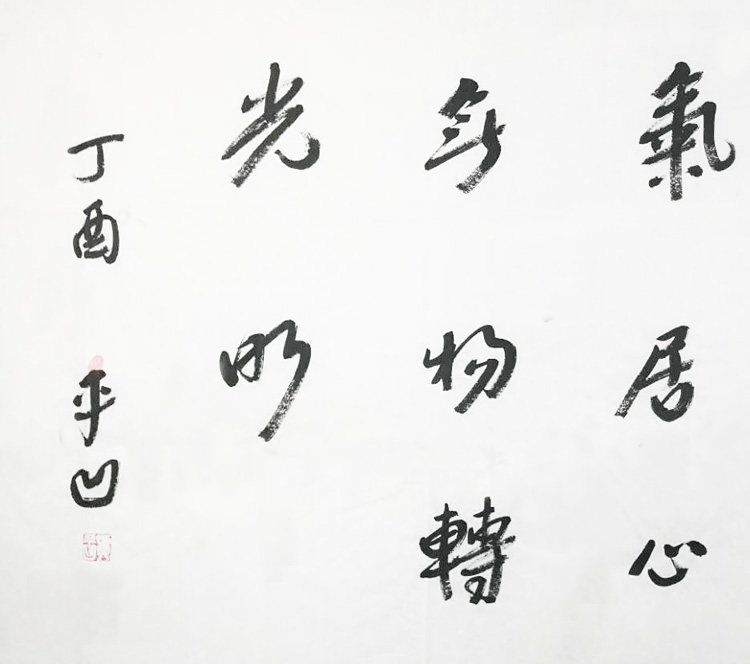 氣居心
物轉
光明
丁酉 平凹